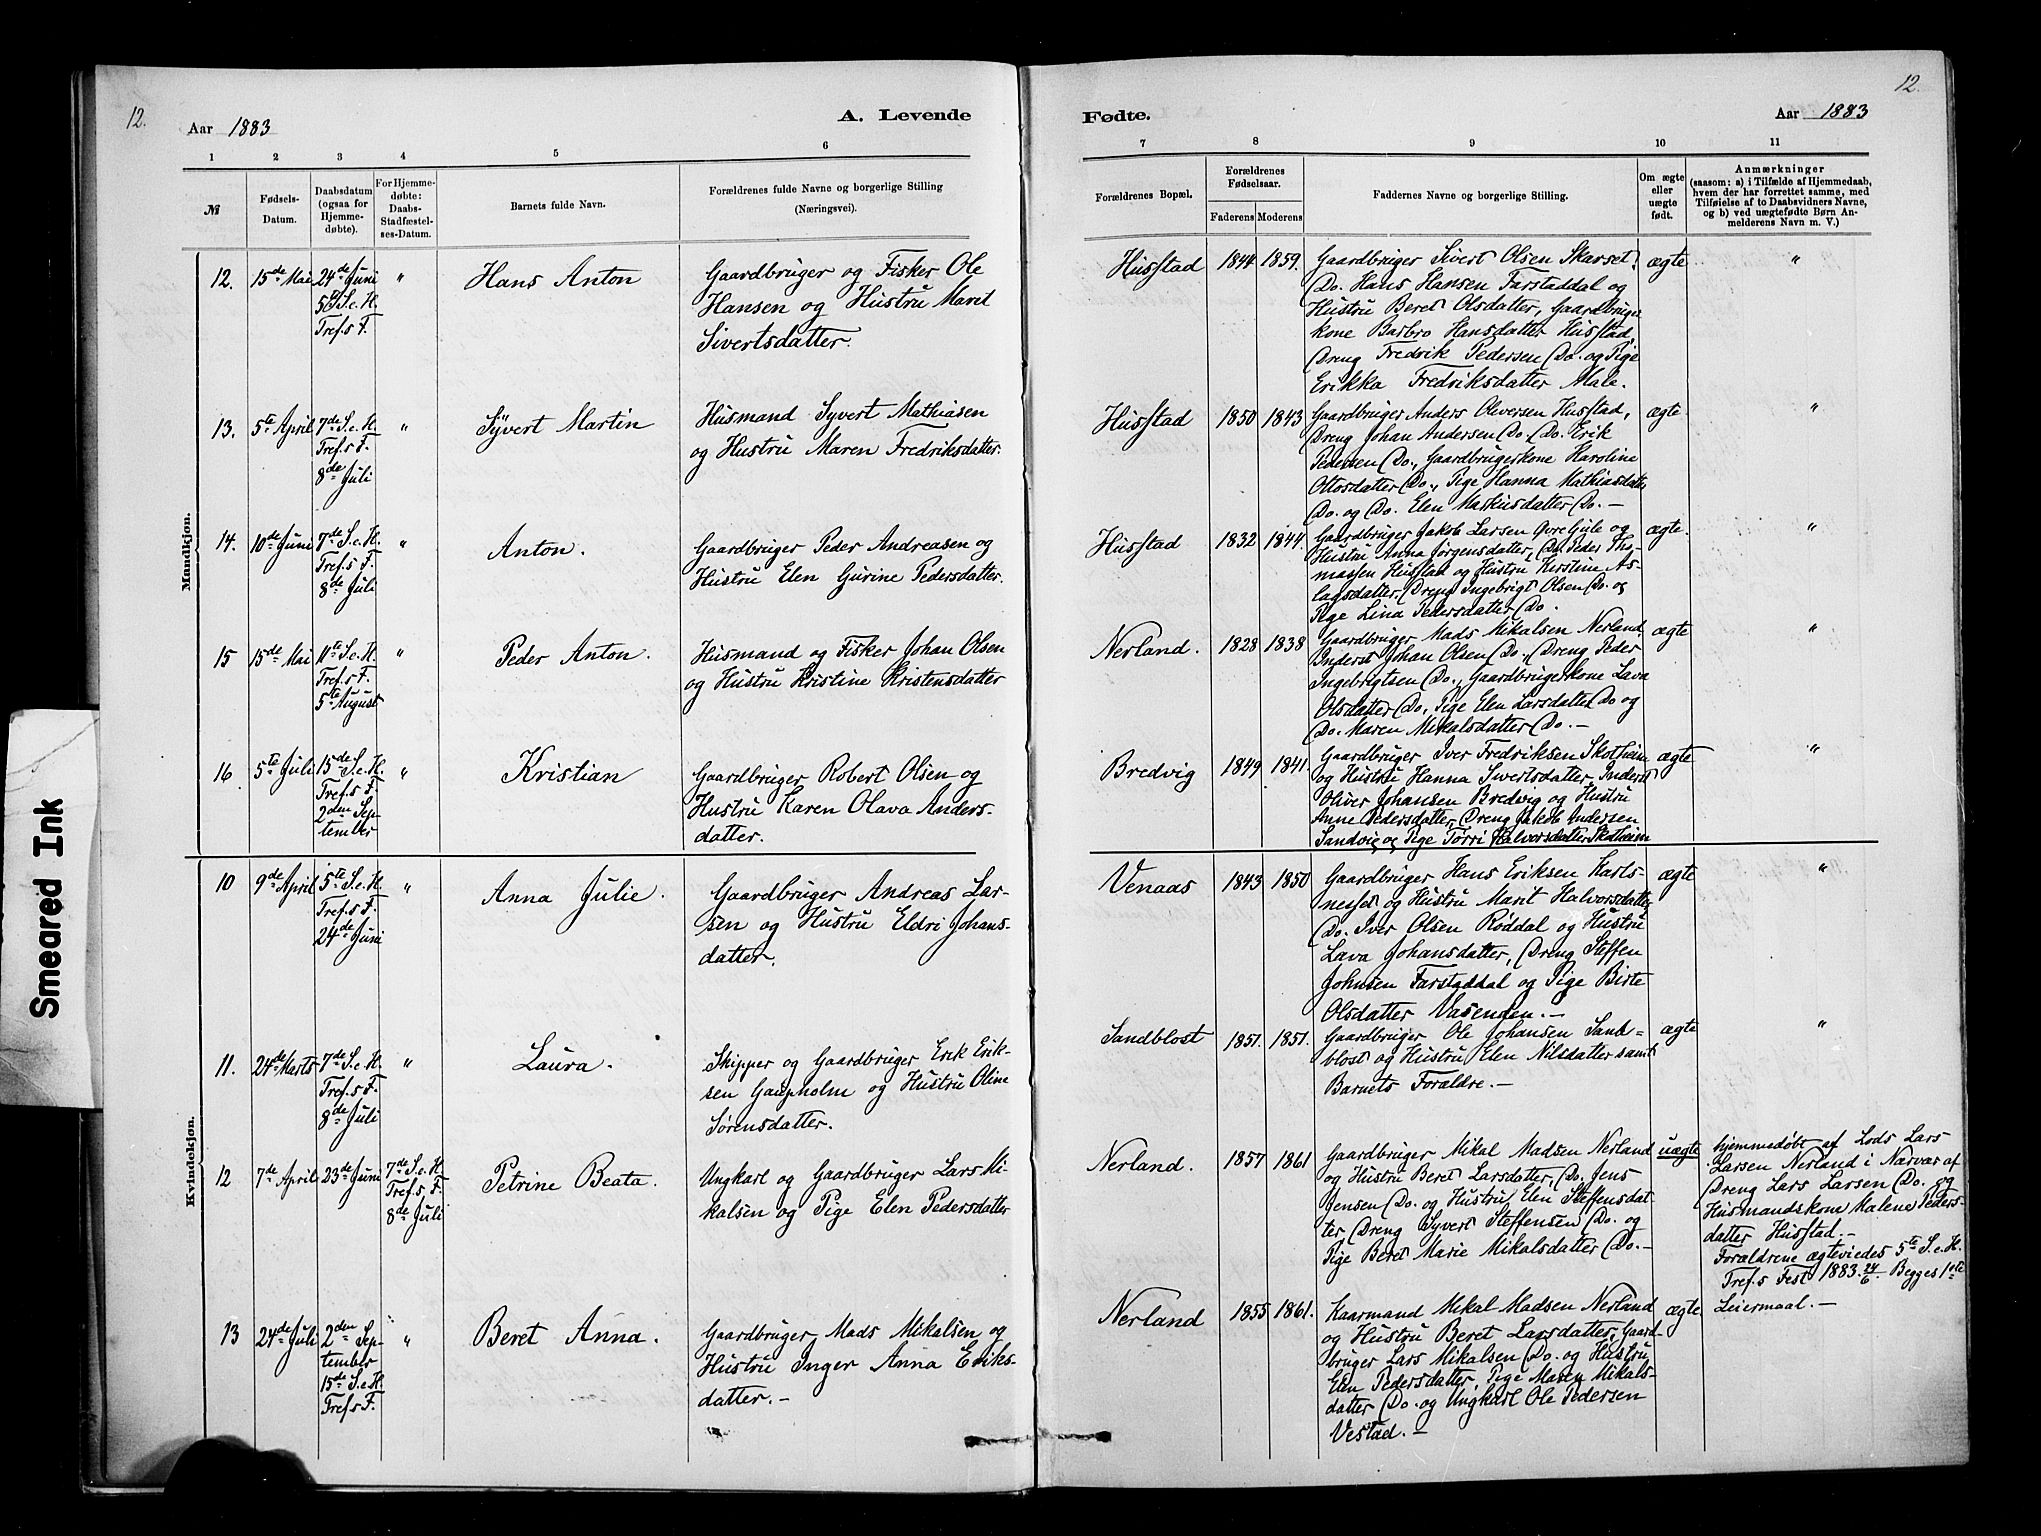 12.
Aar 1883
A. Levende
1 2 3 4 5 6
№
Fødsels-
Datum.
Daabsdatum
(ogsaa for
Hjemme-
døbte).
For Hjemme-
døbte:
Daabs-
Stadfæstel-
ses-Datum.
Barnets fulde Navn.
Forældrenes fulde Navne og borgerlige Stilling
(Næringsvei).
Mandkjøn.
12. 15de Mai
24de Juni
5te S. e. H.
Tref.s F.
"
Hans Anton
Gaardbruger og Fisker Ole
Hansen og Hustru Marit
Sivertsdatter.
13. 5te April
7de S. e. H.
Tref.s F.
8de Juli
"
Syvert Martin
Husmand Syvert Mathiasen
og Hustru Maren Fredriksdatter.
14. 10de Juni
7de S. e. H.
Tref.s F.
8de Juli
"
Anton.
Gaardbruger Peder Andreasen og
Hustru Elen Gurine Pedersdatter.
15 15de Mai
11te S. e. H.
Tref.s F.
5te August
"
Peder Anton.
Husmand og Fisker Johan Olsen
og Hustru Kristine Kristensdatter
16 5te Juli
15de S. e. H.
Tref.s F.
2den Sep-
tember
"
Kristian
Gaardbruger Robert Olsen og
Hustru Karen Olava Anders-
datter.
Kvindekjøn.
10 9de April
5te S. e. H.
Tref.s F.
24de Juni
"
Anna Julie.
Gaardbruger Andreas Lar-
sen og Hustru Eldri Johans-
datter.
11. 24de Marts
7de S. e. H.
Tref.s F.
8de Juli
"
Laura.
Skipper og Gaardbruger Erik Erik-
sen Gaupholm og Hustru Oline
Sørensdatter.
12 7de April
23de Juni
7de S. e. H.
Tref.s F.
8de Juli
Petrine Beata.
Ungkarl og Gaardbruger Lars Mi-
kalsen og Pige Elen Pedersdatter
13 24de Juli
2den Sep-
tember
15de S. e. H.
Tref.s F.
"
Beret Anna.
Gaardbruger Mads Mikalsen og
Hustru Inger Anna Eriks-
datter.-
12.
Fødte.
Aar 1883
7 8 9 10 11
Forældrenes Bopæl.
Forældrenes
Fødselsaar.
Faderens Moderens
Faddernes Navne og borgerlige Stilling.
Om ægte
eller
uægte
født.
Anmærkninger
(saasom: a) i Tilfælde af Hjemmedaab,
hvem der har forrettet samme, med
Tilføielse af to Daabsvidners Navne,
og b) ved uægtefødte Børn An-
melderens Navn m. V.)
Husstad 1844 1859.
Gaardbruger Sivert Olsen Skarset,
Do. Hans Hansen Farstaddal og
Hustru Beret Olsdatter, Gaardbruger
kone Barbro Hansdatter Husstad,
Dreng Fredrik Pedersen Do. og Pige
Erikka Fredriksdatter Male.
ægte "
Husstad 1850 1843
Gaardbruger Anders Oliversen Husstad,
Dreng Johan Andersen Do., Do. Erik
Pedersen Do., Gaardbrugerkone Karoline
Ottosdatter Do., Pige Hanna Mathiasdatter
Do. og Do. Elen Maskusdatter Do. -
ægte "
Husstad 1832 1844.
Gaardbruger Jakob Larsen Øvre Gule og
Hustru Anna Jørgensdatter, Do. Peder Tho-
massen Husstad og Hustru Kerstine As-
lagsdatter, Dreng Ingebrigt Olsen Do. og
Pige Lina Pedersdatter Do.
ægte. "
Nerland. 1828 1838
Gaardbruger Mads Mikalsen Nerland,
Inderst Johan Olsen Do., Dreng Peder
Ingebrigtsen Do., Gaardbrugerkone Lava
Olsdatter Do., Pige Elen Larsdatter Do og
Do. Maren Mikalsdatter Do. -
ægte "
Bredvig 1849 1841.
Gaardbruger Iver Fredriksen Skotheim
og Hustru Hanna Sivertsdatter, Inderst
Oliver Johansen Bredvig og Hustru
Anne Pedersdatter, Dreng Jakob Andersen
Sandvig og Pige Torri Halvorsdatter Skotheim
ægte "
Venaas 1843 1850
Gaardbruger Hans Eriksen Karls-
nesset og Hustru Marit Halvorsdatter,
Do. Iver Olsen Røddal og Hustru
Lava Johansdatter, Dreng Steffen
Johnsen Farstaddal og Pige Birte
Olsdatter Vasenden. -
ægte "
Sandblost 1851. 1851.
Gaardbruger Ole Johansen Sand=
blost og Hustru Elen Nilsdatter samt
Barnets Forældre. -
ægte "
Nerland. 1857 1861
Gaardbruger Mikal Madsen Nerland
og Hustru Beret Larsdatter, Do. Jens
Jensen Do. og Hustru Elen Steffensdat-
ter, Dreng Syvert Steffensen Do. og
Pige Beret Marie Mikalsdatter Do. -
uægte
hjemmedøbt af Lods Lars
Larsen Nerland i Nærvær af
Dreng Lars Larsen Do. og
Husmandskone Malene Peders-
datter Husstad. -
Forældrene ægteviedes 5te S. e. H.
Tref.s Fest 1883. 24/6. Begges 1ste
Leiermaal. -
Nerland 1855 1861.
Kaarmand Mikal Madsen Nerland
og Hustru Beret Larsdatter, Gaard-
bruger Lars Mikalsen Do. og Hustru
Elen Pedersdatter, Pige Maren Mikals-
datter Do. og Ungkarl Ole Pedersen
Vestad. -
ægte
Smeared Ink